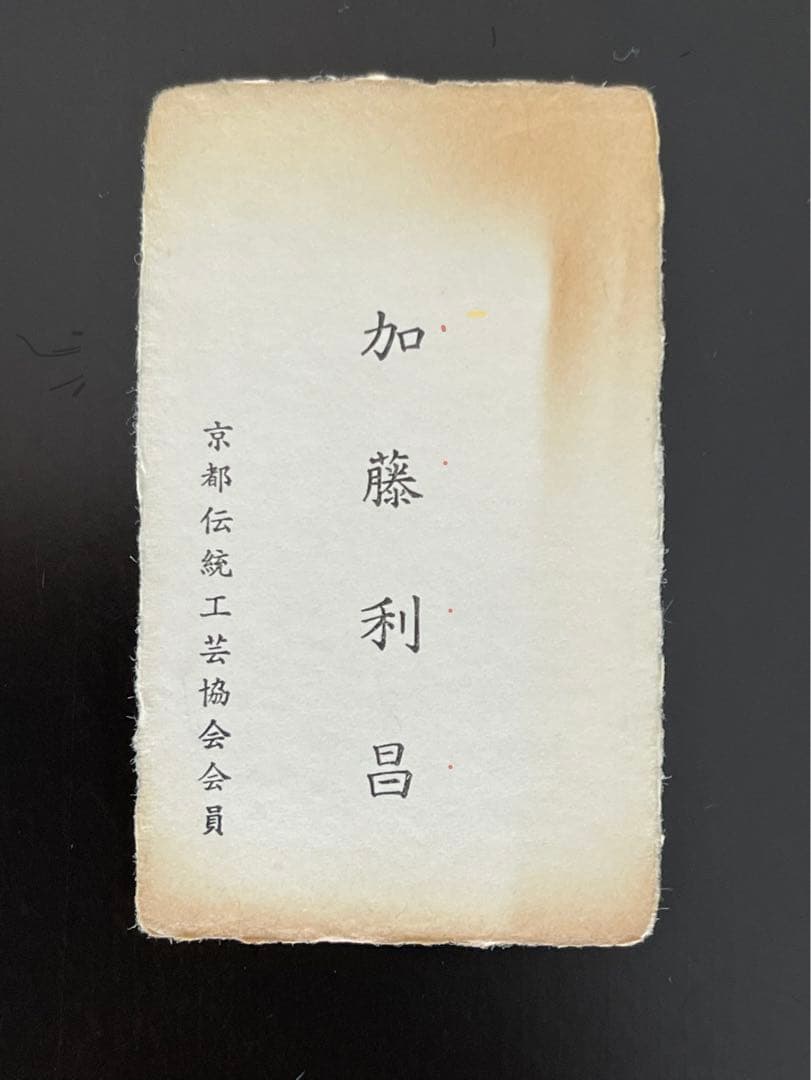 加藤利昌
京都伝統工芸協会会員